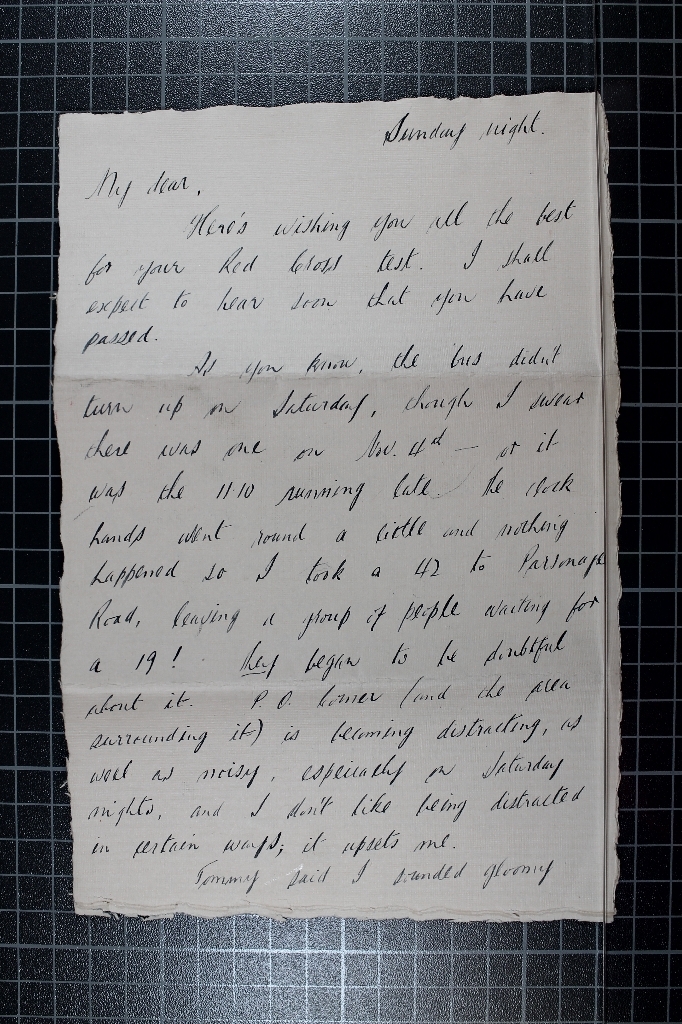 Sunday night.
My dear,
Here's wishing you all the best
for your Red Cross test. I shall
expect to hear soon that you have
passed.
As you know, the 'bus didn't
turn up on Saturday, though I swear
there was one on Nov. 4th — or it
was the 11.10 running late. The clock
hands went round a little and nothing
happened so I took a 42 to Parsonage
Road, leaving a group of people waiting for
a 19! They began to be doubtful
about it. P.O. Corner (and the area
surrounding it) is becoming distracting, as
well as noisy, especially on Saturday
nights, and I don't like being distracted
in certain ways; it upsets me.
Tommy said I sounded gloomy